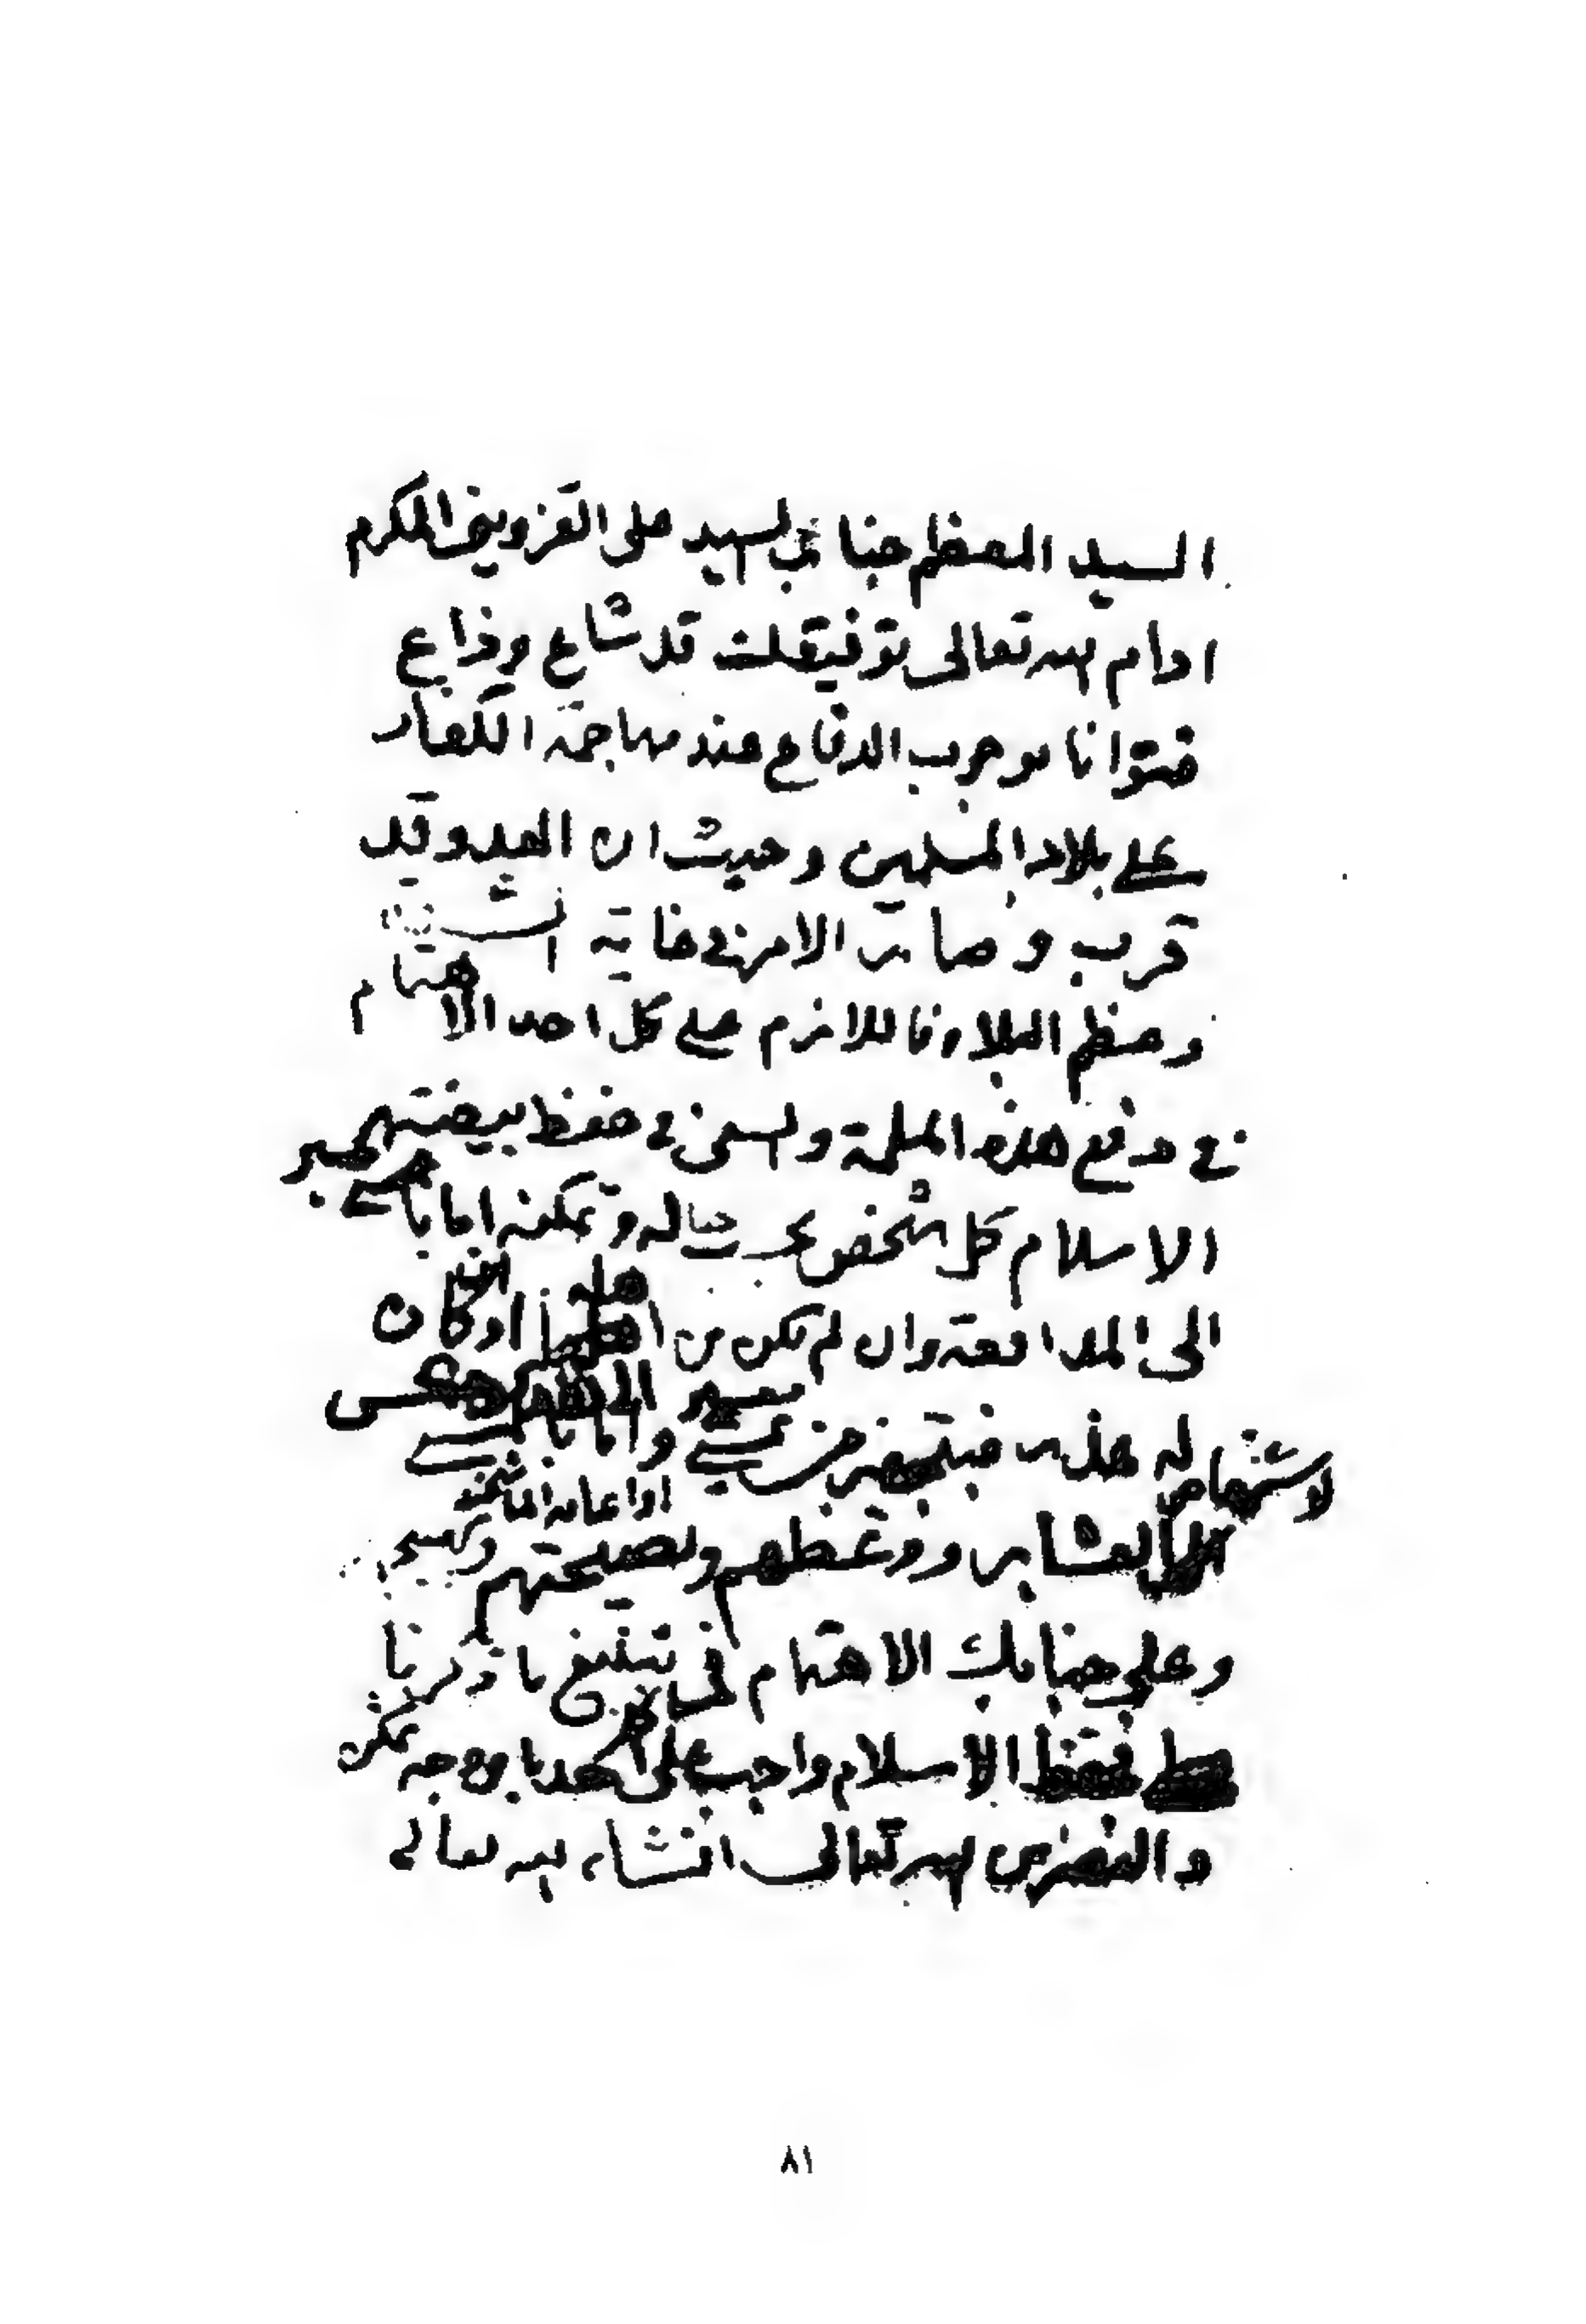 السيد المعظم جناب السيد على القزويني المكرم
ادام الله تعالى توفيقك قد شاع وذاع
فتوانا بوجوب الدفاع عند مهاجمة الكفار
على بلاد المسلمين وحيث ان العدو قد
قرب وصار الامر في غاية الشدة
وعظم البلاء فاللازم على كل احد الاهتمام
في دفع هذه الملمة والسعي في حفظ بيضة
الاسلام كل شخص بحسب حاله وتمكنه اما
الى المدافعة وان لم يكن من او كان
له عذر فيجهز من يمضي واما
العشاير ووعظهم ونصيحتهم
وعلى جنابك الاهتمام في تبليغ ما ذكرنا
فحفظ الاسلام واجب على كل احد باي وجه تمكن
والنصر من الله تعالى انشاء الله تعالى
٨١